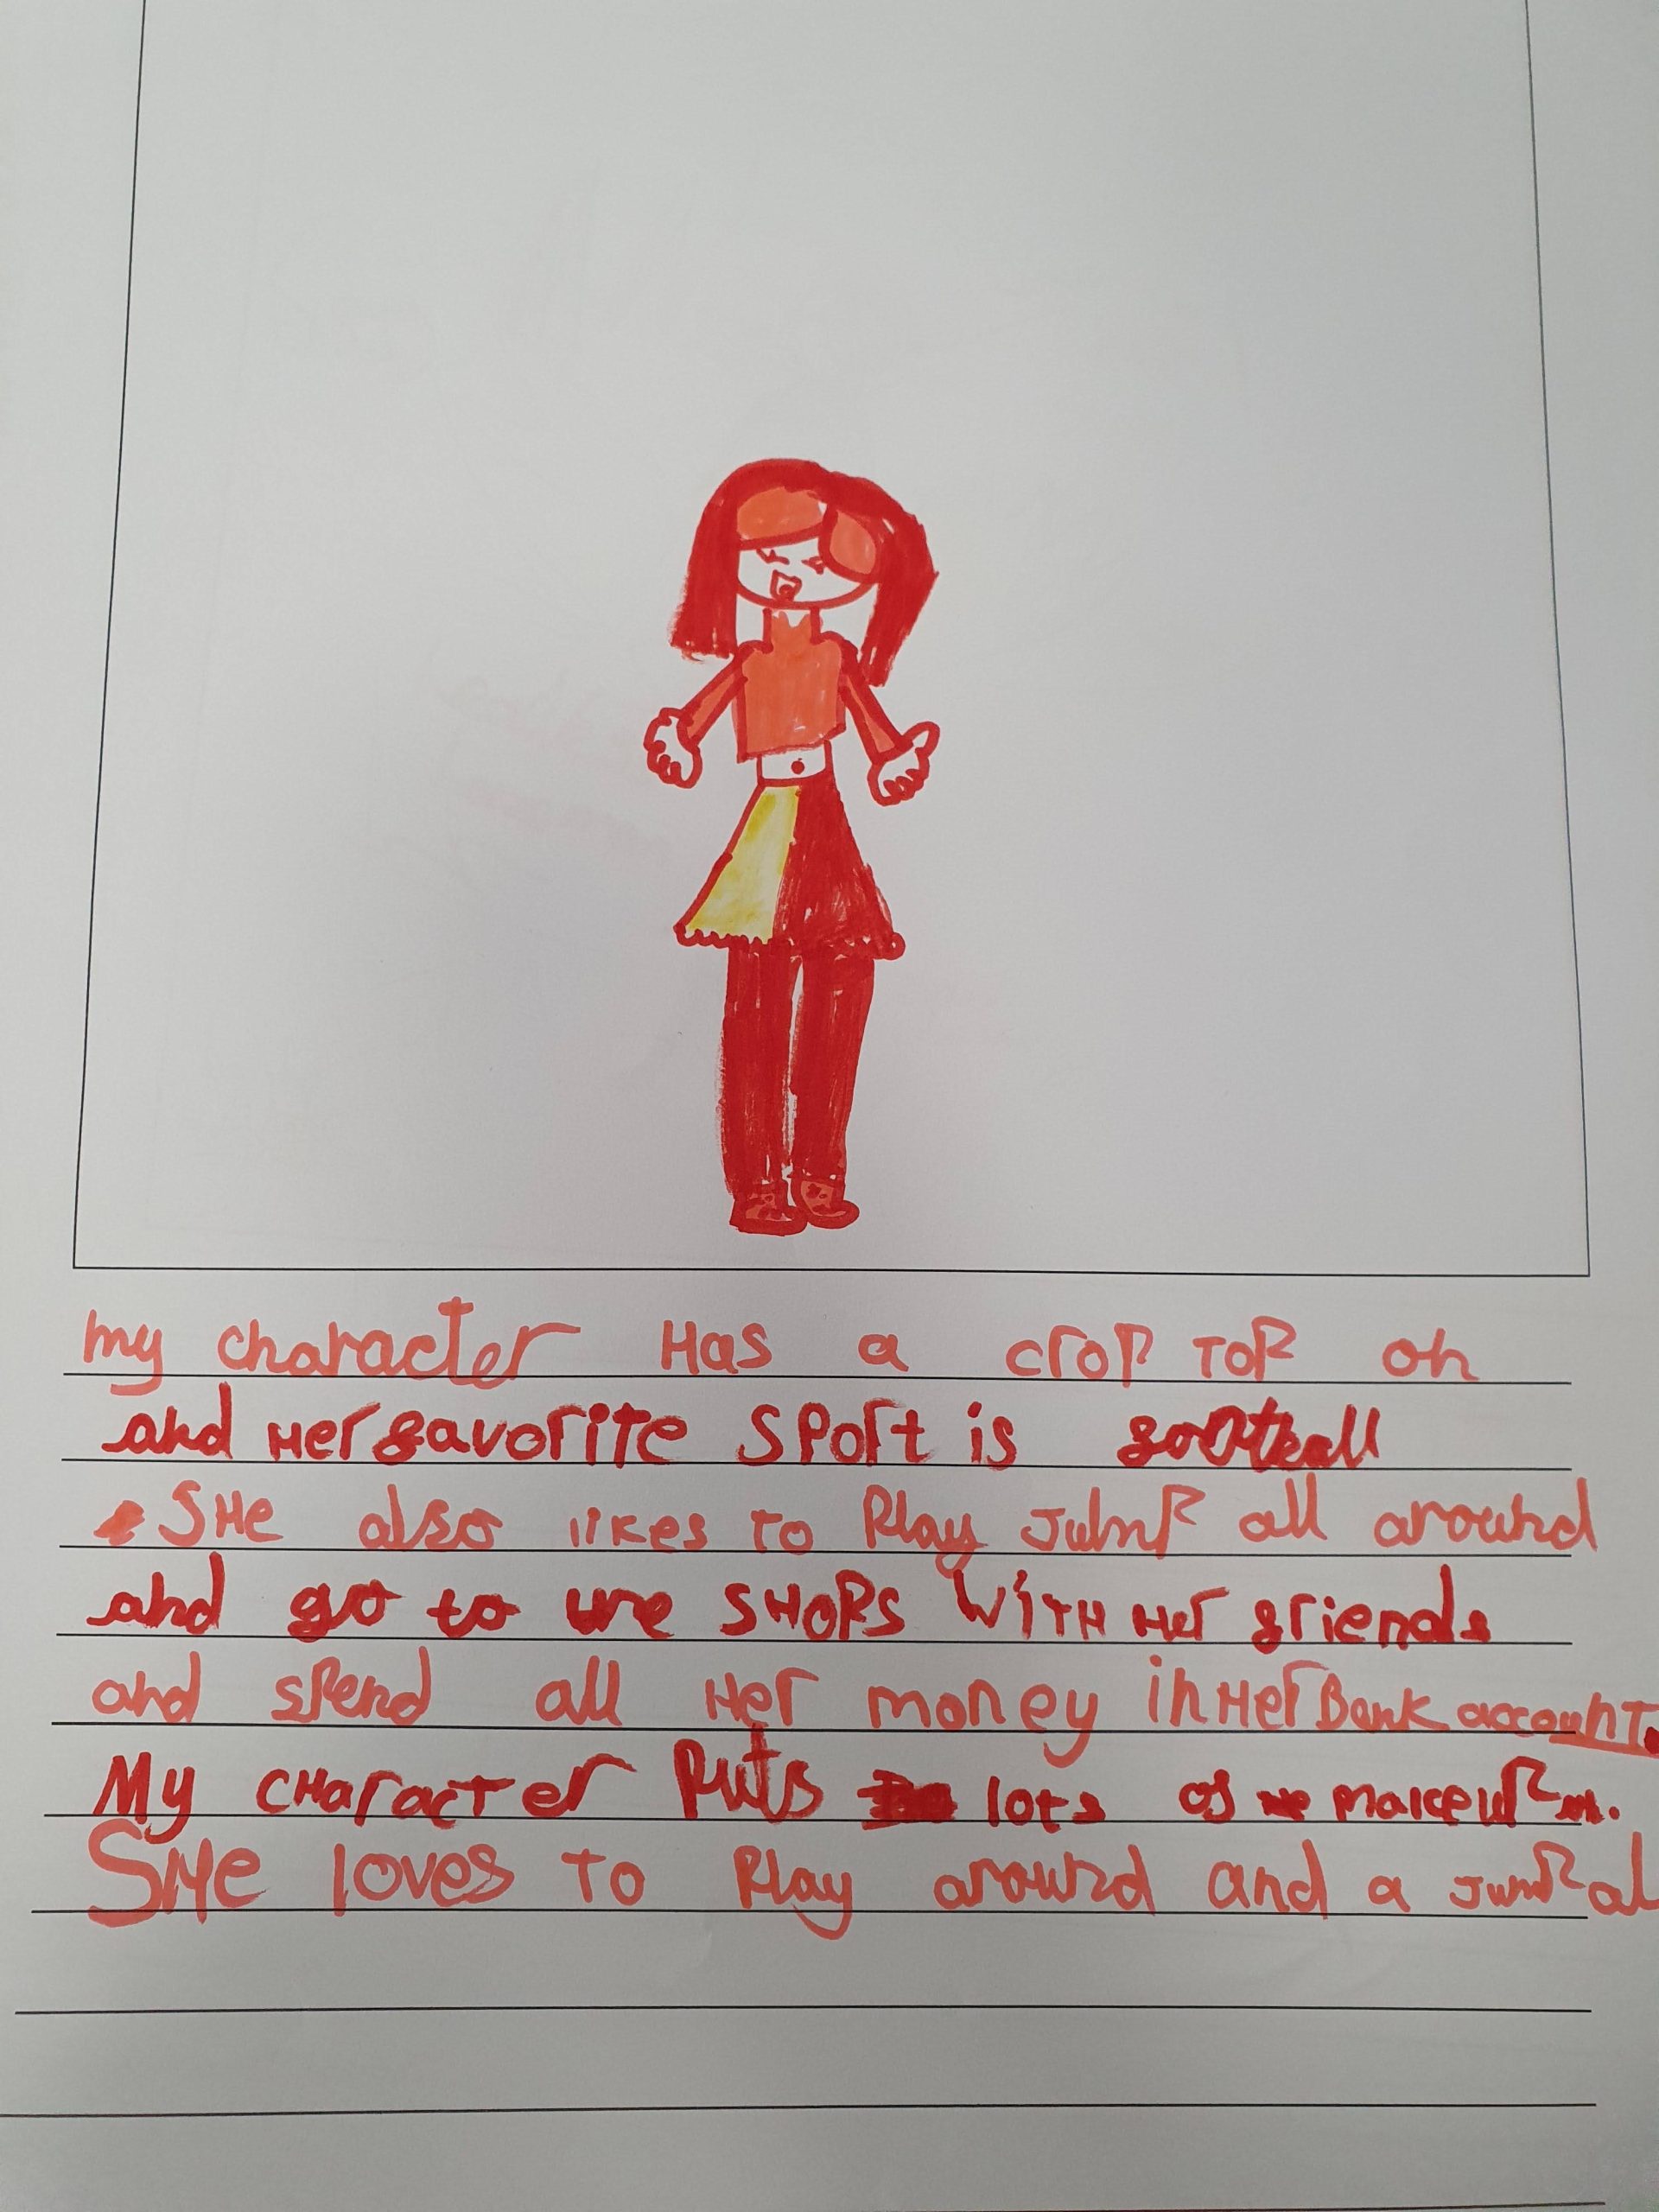 my character Has a crop Top on
and Her favorite sport is football
She also likes to Play Jump all around
and go to the SHOPS WiTH Her friends
and spend all Her money in Her Bank account.
My cHaracter Puts lots of makeup on.
SHe loves To Play around and a Jump al